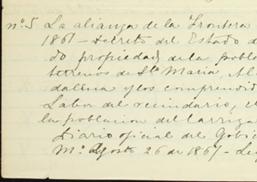 nº 5 La alianza de la Frontera
1861 - decreto del Estado d
do propiedad de la pobla
terrenos de Sta Maria, Al
dalina y los comprendid
Labor del vecindario, e
la poblacion del Carriza
Diario oficial del Gobie
Mº Agosto 26 de 1867 - Le